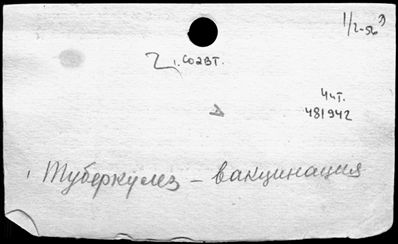 1/2-56
, соавт.
Чит.
481942
Туберкулез – вакцинация